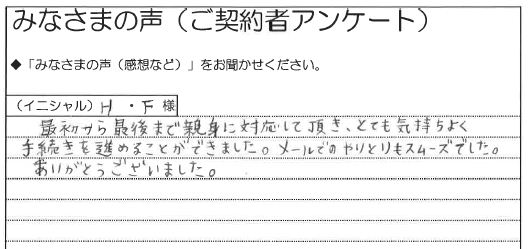 みなさまの声（ご契約者アンケート）
◆「みなさまの声（感想など）」をお聞かせください。
（イニシャル）H ・F 様
最初から最後まで親身に対応して頂き、とても気持ちよく
手続きを進めることができました。メールでのやりとりもスムーズでした。
ありがとうございました。